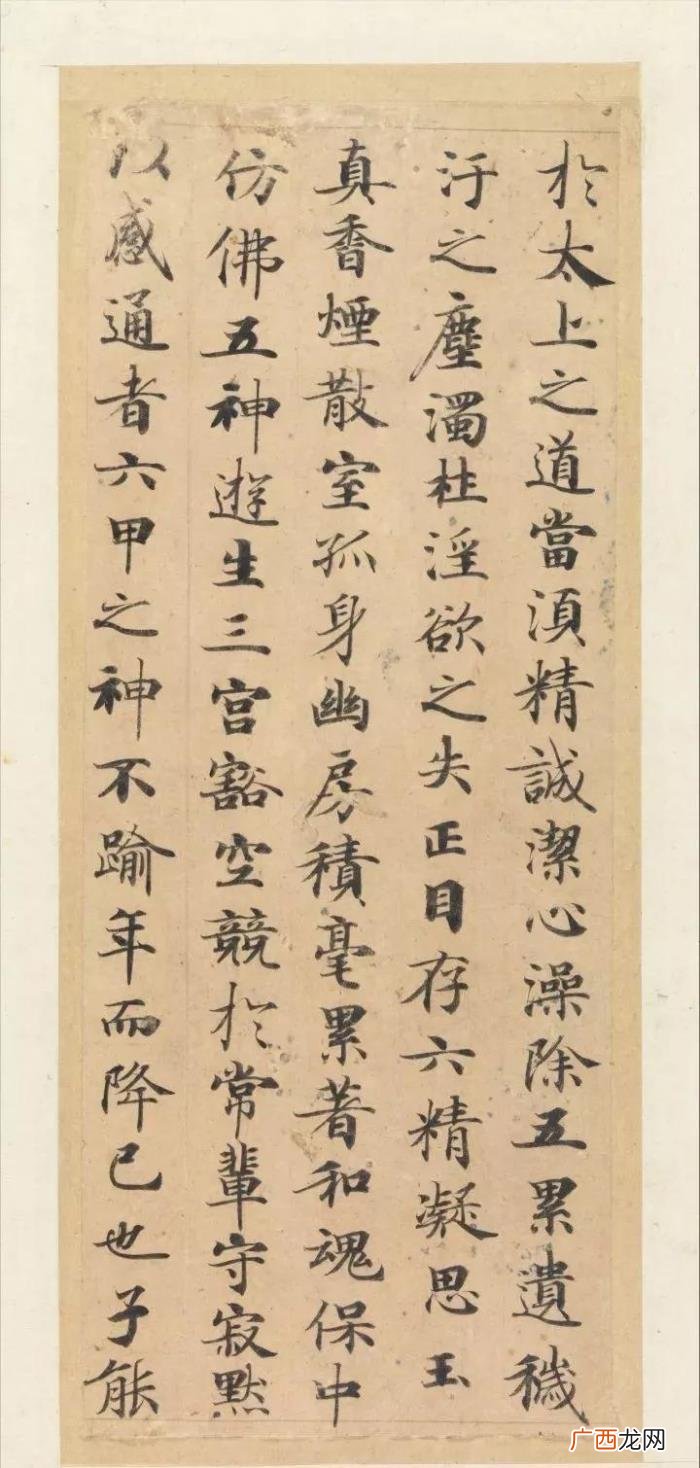 於太上之道當湏精誠潔心澡除五累遺穢
汙之塵濁杜淫欲之失正目存六精凝思玉
真香煙散室孤身幽房積毫累著和魂保中
仿佛五神遊生三宮豁空競於常輩守寂默
以感通者六甲之神不踰年而降已也子能
广西龙网